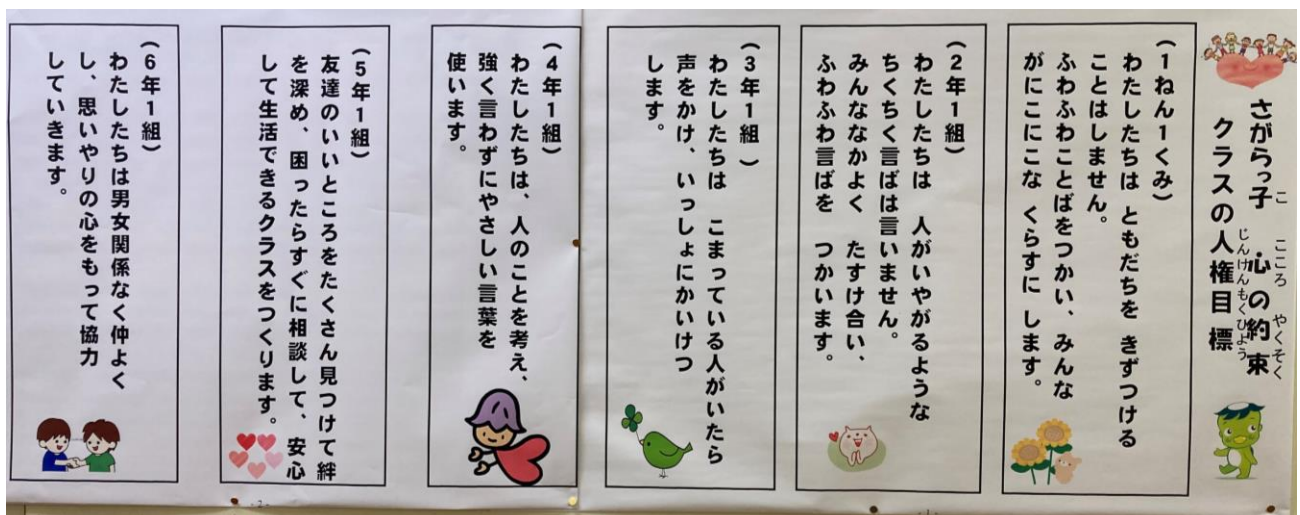 さがらっ子 心の約束
こ こころ やくそく
クラスの人権目標
じんけんもくひょう
(1ねん1くみ)
わたしたちは ともだちを きずつける
ことはしません。
ふわふわことばをつかい、みんな
がにこにこな くらすに します。
(2年1組)
わたしたちは 人がいやがるような
ちくちく言ばは言いません。
みんななかよく たすけ合い、
ふわふわ言ばを つかいます。
(3年1組 )
わたしたちは こまっている人がいたら
声をかけ、いっしょにかいけつ
します。
(4年1組)
わたしたちは、人のことを考え、
強く言わずにやさしい言葉を
使います。
(5年1組)
友達のいいところをたくさん見つけて絆
を深め、困ったらすぐに相談して、安心
して生活できるクラスをつくります。
(6年1組)
わたしたちは男女関係なく仲よく
し、思いやりの心をもって協力
していきます。
-1-
-2-